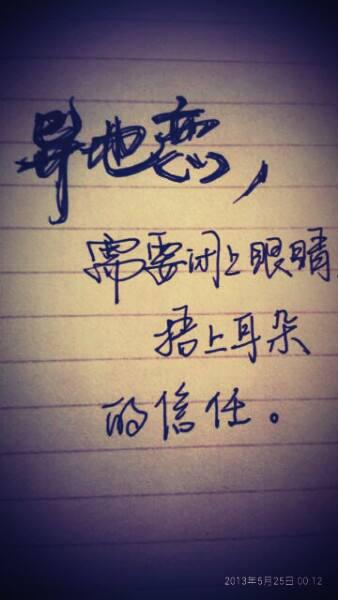 异地恋，
需要闭上眼睛，
捂上耳朵
的信任。
2013年5月25日 00:12